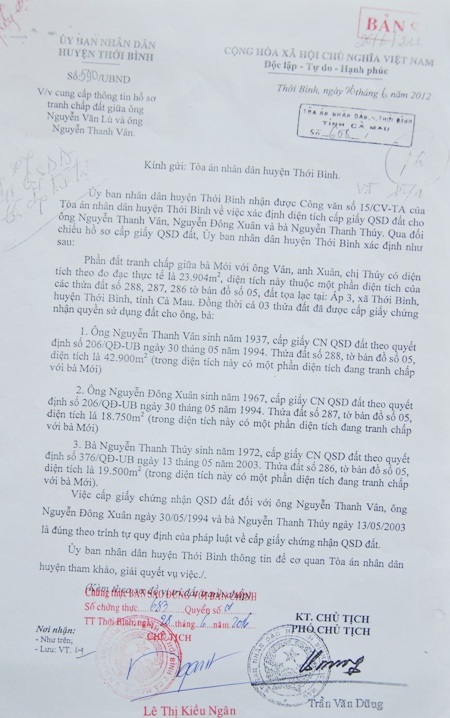 BẢN S
ỦY BAN NHÂN DÂN
HUYỆN THỚI BÌNH
CỘNG HÒA XÃ HỘI CHỦ NGHĨA VIỆT NAM
Độc lập - Tự do - Hạnh phúc
Số: 590/UBND
Thới Bình, ngày 20 tháng 6 năm 2012
V/v cung cấp thông tin hồ sơ
tranh chấp đất giữa ông
Nguyễn Văn Lù và ông
Nguyễn Thanh Vân.
TÒA ÁN NHÂN DÂN H. THỚI BÌNH
TỈNH CÀ MAU
Số
Kính gửi: Tòa án nhân dân huyện Thới Bình.
Ủy ban nhân dân huyện Thới Bình nhận được Công văn số 15/CV-TA của
Tòa án nhân dân huyện Thới Bình về việc xác định diện tích cấp giấy QSD đất cho
ông Nguyễn Thanh Vân, Nguyễn Đông Xuân và bà Nguyễn Thanh Thúy. Qua đối
chiếu hồ sơ cấp giấy QSD đất, Ủy ban nhân dân huyện Thới Bình xác định như
sau:
Phần đất tranh chấp giữa bà Mới với ông Vân, anh Xuân, chị Thúy có diện
tích theo đo đạc thực tế là 23.904m², diện tích này thuộc một phần diện tích của
các thửa đất số 288, 287, 286 tờ bản đồ số 05, đất tọa lạc tại: Ấp 3, xã Thới Bình,
huyện Thới Bình, tỉnh Cà Mau. Đồng thời cả 03 thửa đất đã được cấp giấy chứng
nhận quyền sử dụng đất cho ông, bà:
1. Ông Nguyễn Thanh Vân sinh năm 1937, cấp giấy CN QSD đất theo quyết
định số 206/QĐ-UB ngày 30 tháng 05 năm 1994. Thửa đất số 288, tờ bản đồ số 05,
diện tích là 42.900m² (trong diện tích này có một phần diện tích đang tranh chấp
với bà Mới)
2. Ông Nguyễn Đông Xuân sinh năm 1967, cấp giấy CN QSD đất theo quyết
định số 206/QĐ-UB ngày 30 tháng 05 năm 1994. Thửa đất số 287, tờ bản đồ số 05,
diện tích là 18.750m² (trong diện tích này có một phần diện tích đang tranh chấp
với bà Mới)
3. Bà Nguyễn Thanh Thúy sinh năm 1972, cấp giấy CN QSD đất theo quyết
định số 376/QĐ-UB ngày 13 tháng 05 năm 2003. Thửa đất số 286, tờ bản đồ số 05,
diện tích là 19.500m² (trong diện tích này có một phần diện tích đang tranh chấp
với bà Mới).
Việc cấp giấy chứng nhận QSD đất đối với ông Nguyễn Thanh Vân, ông
Nguyễn Đông Xuân ngày 30/05/1994 và bà Nguyễn Thanh Thúy ngày 13/05/2003
là đúng theo trình tự quy định của pháp luật về cấp giấy chứng nhận QSD đất.
Ủy ban nhân dân huyện Thới Bình thông tin để cơ quan Tòa án nhân dân
huyện tham khảo, giải quyết vụ việc./.
Số chứng thực 683 Quyển số 01
TT Thới Bình, ngày 28 tháng 6 năm
CHỦ TỊCH
Nơi nhận:
- Như trên;
- Lưu: VT.
KT. CHỦ TỊCH
PHÓ CHỦ TỊCH
Lê Thị Kiều Ngân
Trần Văn Dũng